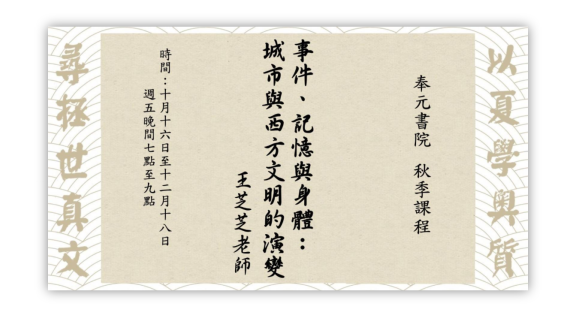 以夏學奧質
奉元書院 秋季課程
事件、記憶與身體：
城市與西方文明的演變
王芝芝老師
時間：十月十六日至十二月十八日
週五晚間七點至九點
尋拯世真文